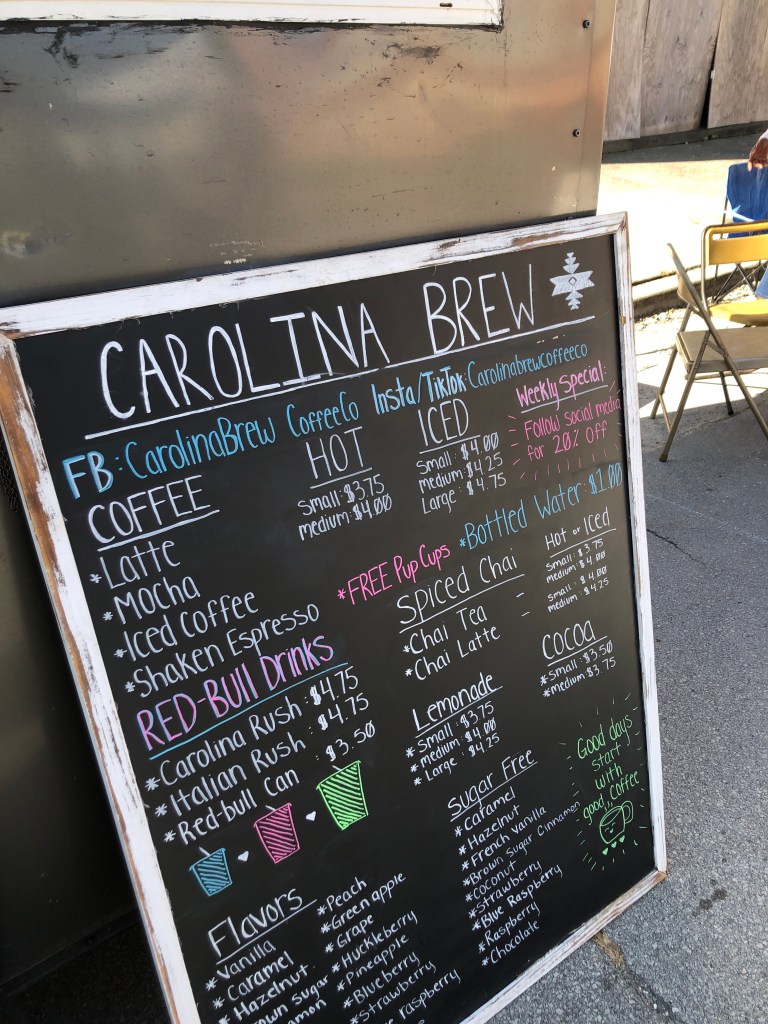 CAROLINA BREW
FB: CarolinaBrew CoffeeCo Insta/TikTok: Carolinabrewcoffeeco
COFFEE
*Latte
*Mocha
*Iced Coffee
*Shaken Espresso
HOT
Small: $3.75
medium: $4.00
ICED
Small: $4.00
medium: $4.25
Large: $4.75
Weekly Special:
Follow social media
for 20% Off
*FREE Pup Cups
*Bottled Water: $1.00
RED-BULL Drinks
*Carolina Rush: $4.75
*Italian Rush: $4.75
*Red-bull Can: $3.50
Spiced Chai
*Chai Tea -
*Chai Latte -
Hot or Iced
Small: $3.75
medium: $4.00
Small: $4.00
medium: $4.25
Lemonade
*Small: $3.75
*medium: $4.00
*Large: $4.25
COCOA
*Small: $3.50
*medium: $3.75
Good days
start
with
good Coffee
Flavors
*Vanilla
*Caramel
*Hazelnut
*Peach
*Green apple
*Grape
*Huckleberry
*Pineapple
*Blueberry
*Strawberry
raspberry
Sugar Free
*Caramel
*Hazelnut
*French Vanilla
*Brown Sugar Cinnamon
*Coconut
*Strawberry
*Blue Raspberry
*Raspberry
*Chocolate